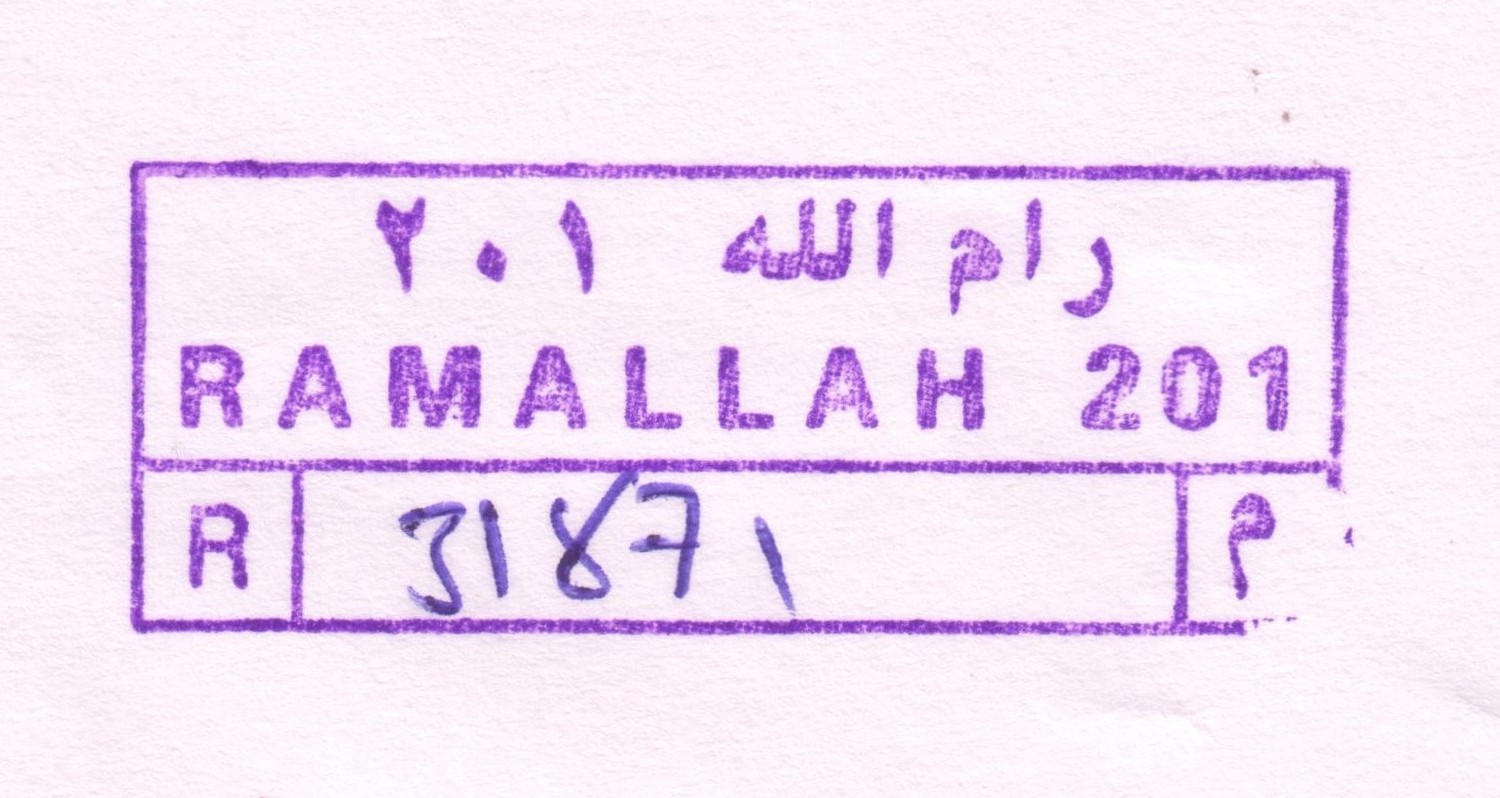 رام الله ٢٠١
RAMALLAH 201
R 31871 م